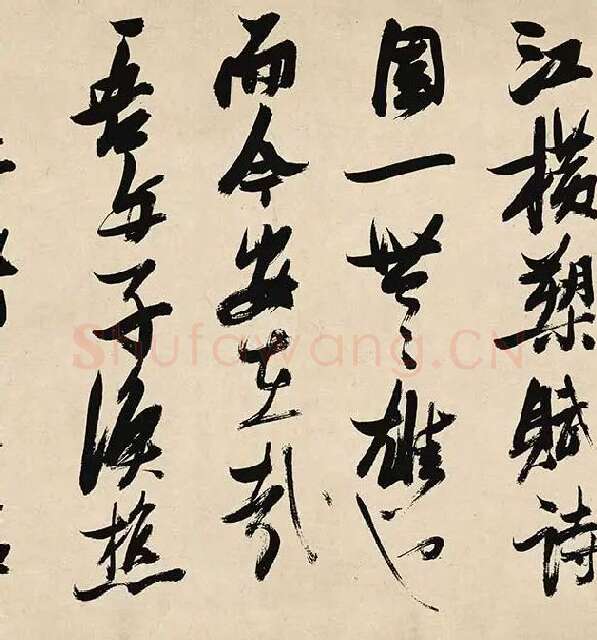 江橫槊賦詩
固一世之雄也
而今安在哉
吾与子漁樵
Shufawang.CN